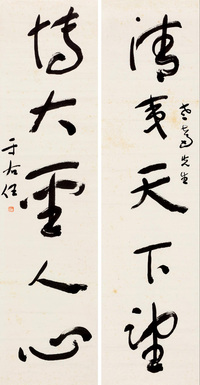 清夷天下望
先生
博大聖人心
于右任